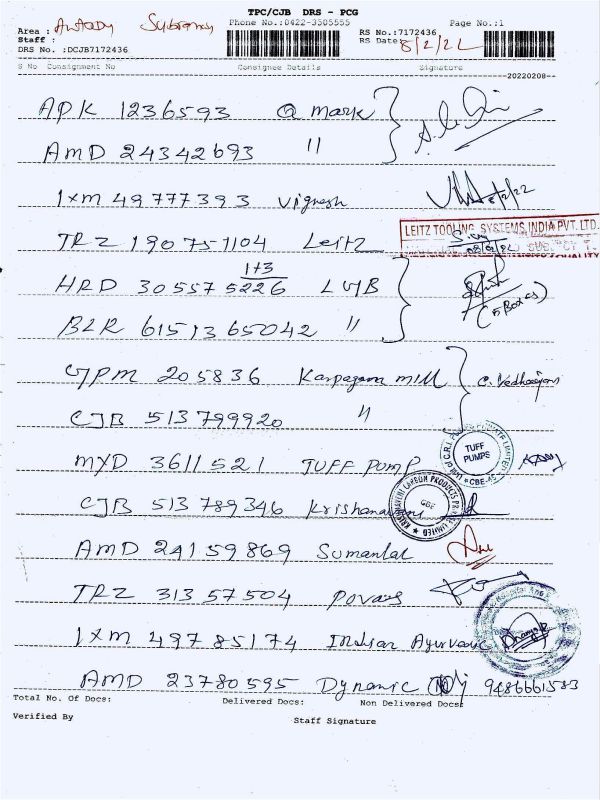 TPC/CJB DRS - PCG
Phone No.:0422-3505555 Page No.:1
Area :
Staff :
DRS No. :DCJB7172436
RS No.:7172436
RS Date: 8/2/22
S No Consignment No Consignee Details Signature
20220208
APK 1236593 Q mark
AMD 24342693 "
IXM 49777393 Vignesh 8/2/22
LEITZ TOOLING SYSTEMS INDIA PVT. LTD.
TRZ 190751104 Leitz
1+3
HRD 305575226 LGB (5 Boxes)
BLR 6151365042 "
CJPM 205836 Karpagam mill
CJB 513799920 "
MYD 3611521 TUFF PUMP
TUFF PUMPS
CBE-45
CJB 513789346
CBE
AMD 24159869 Sumanlal
TRZ 31357504
IXM 49785174 Indian Ayurvedic
AMD 23780595 Dynamic 9486661583
Total No. Of Docs: Delivered Docs: Non Delivered Docs:
Verified By Staff Signature